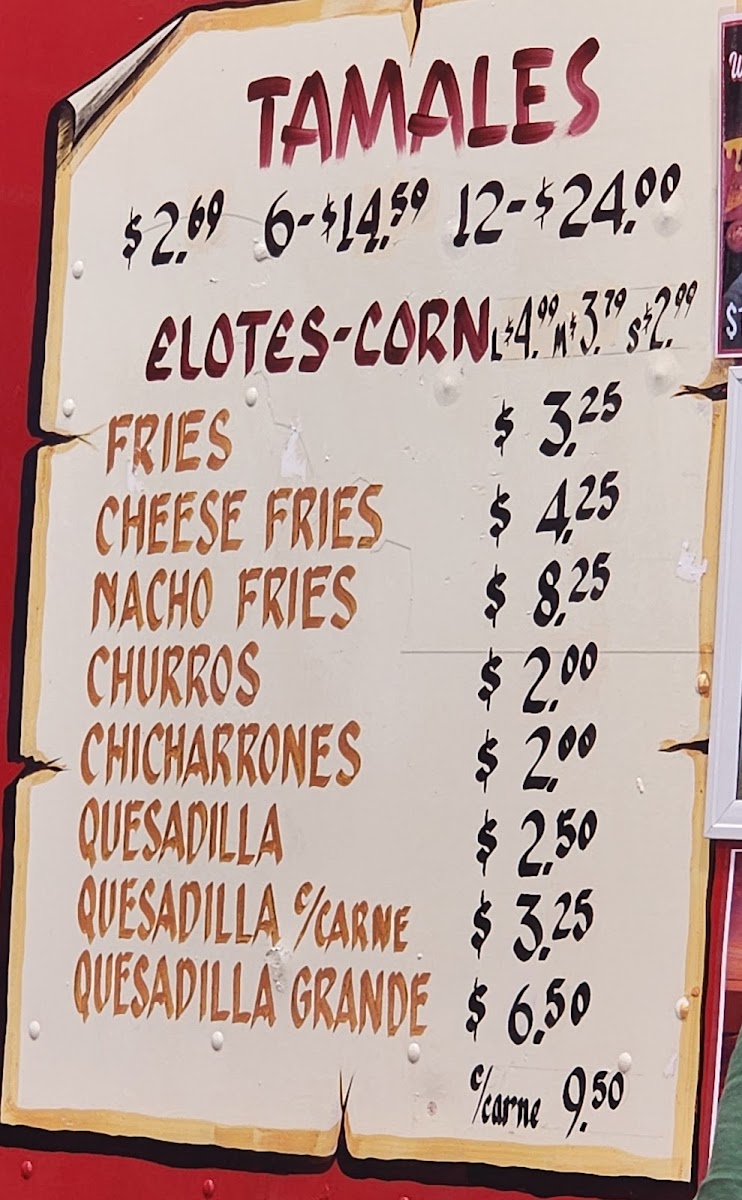 TAMALES
$2.69 6-$14.59 12-$24.00
ELOTES-CORN L$4.99 M$3.79 S$2.99
FRIES $3.25
CHEESE FRIES $4.25
NACHO FRIES $8.25
CHURROS $2.00
CHICHARRONES $2.00
QUESADILLA $2.50
QUESADILLA c/CARNE $3.25
QUESADILLA GRANDE $6.50
c/carne 9.50